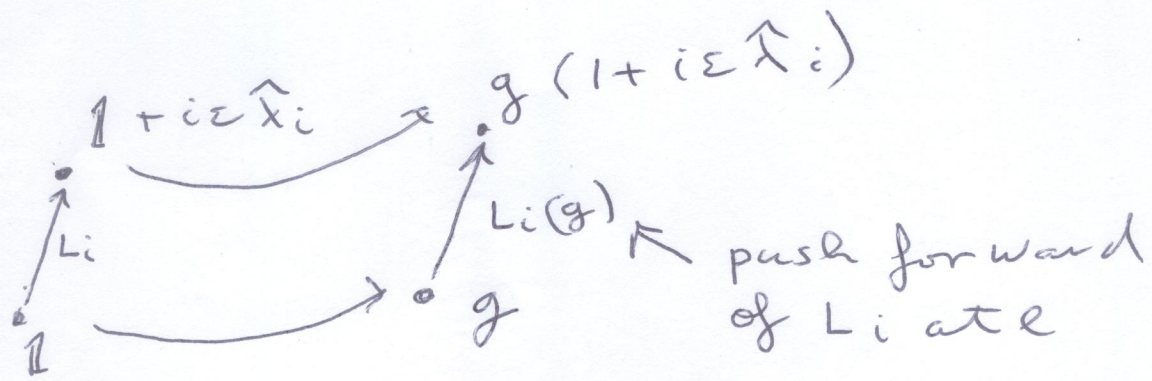 g (1 + iε λ̂i)
𝟙 + iε λ̂i
Li
Li(g)
push forward
of Li at e
g
𝟙